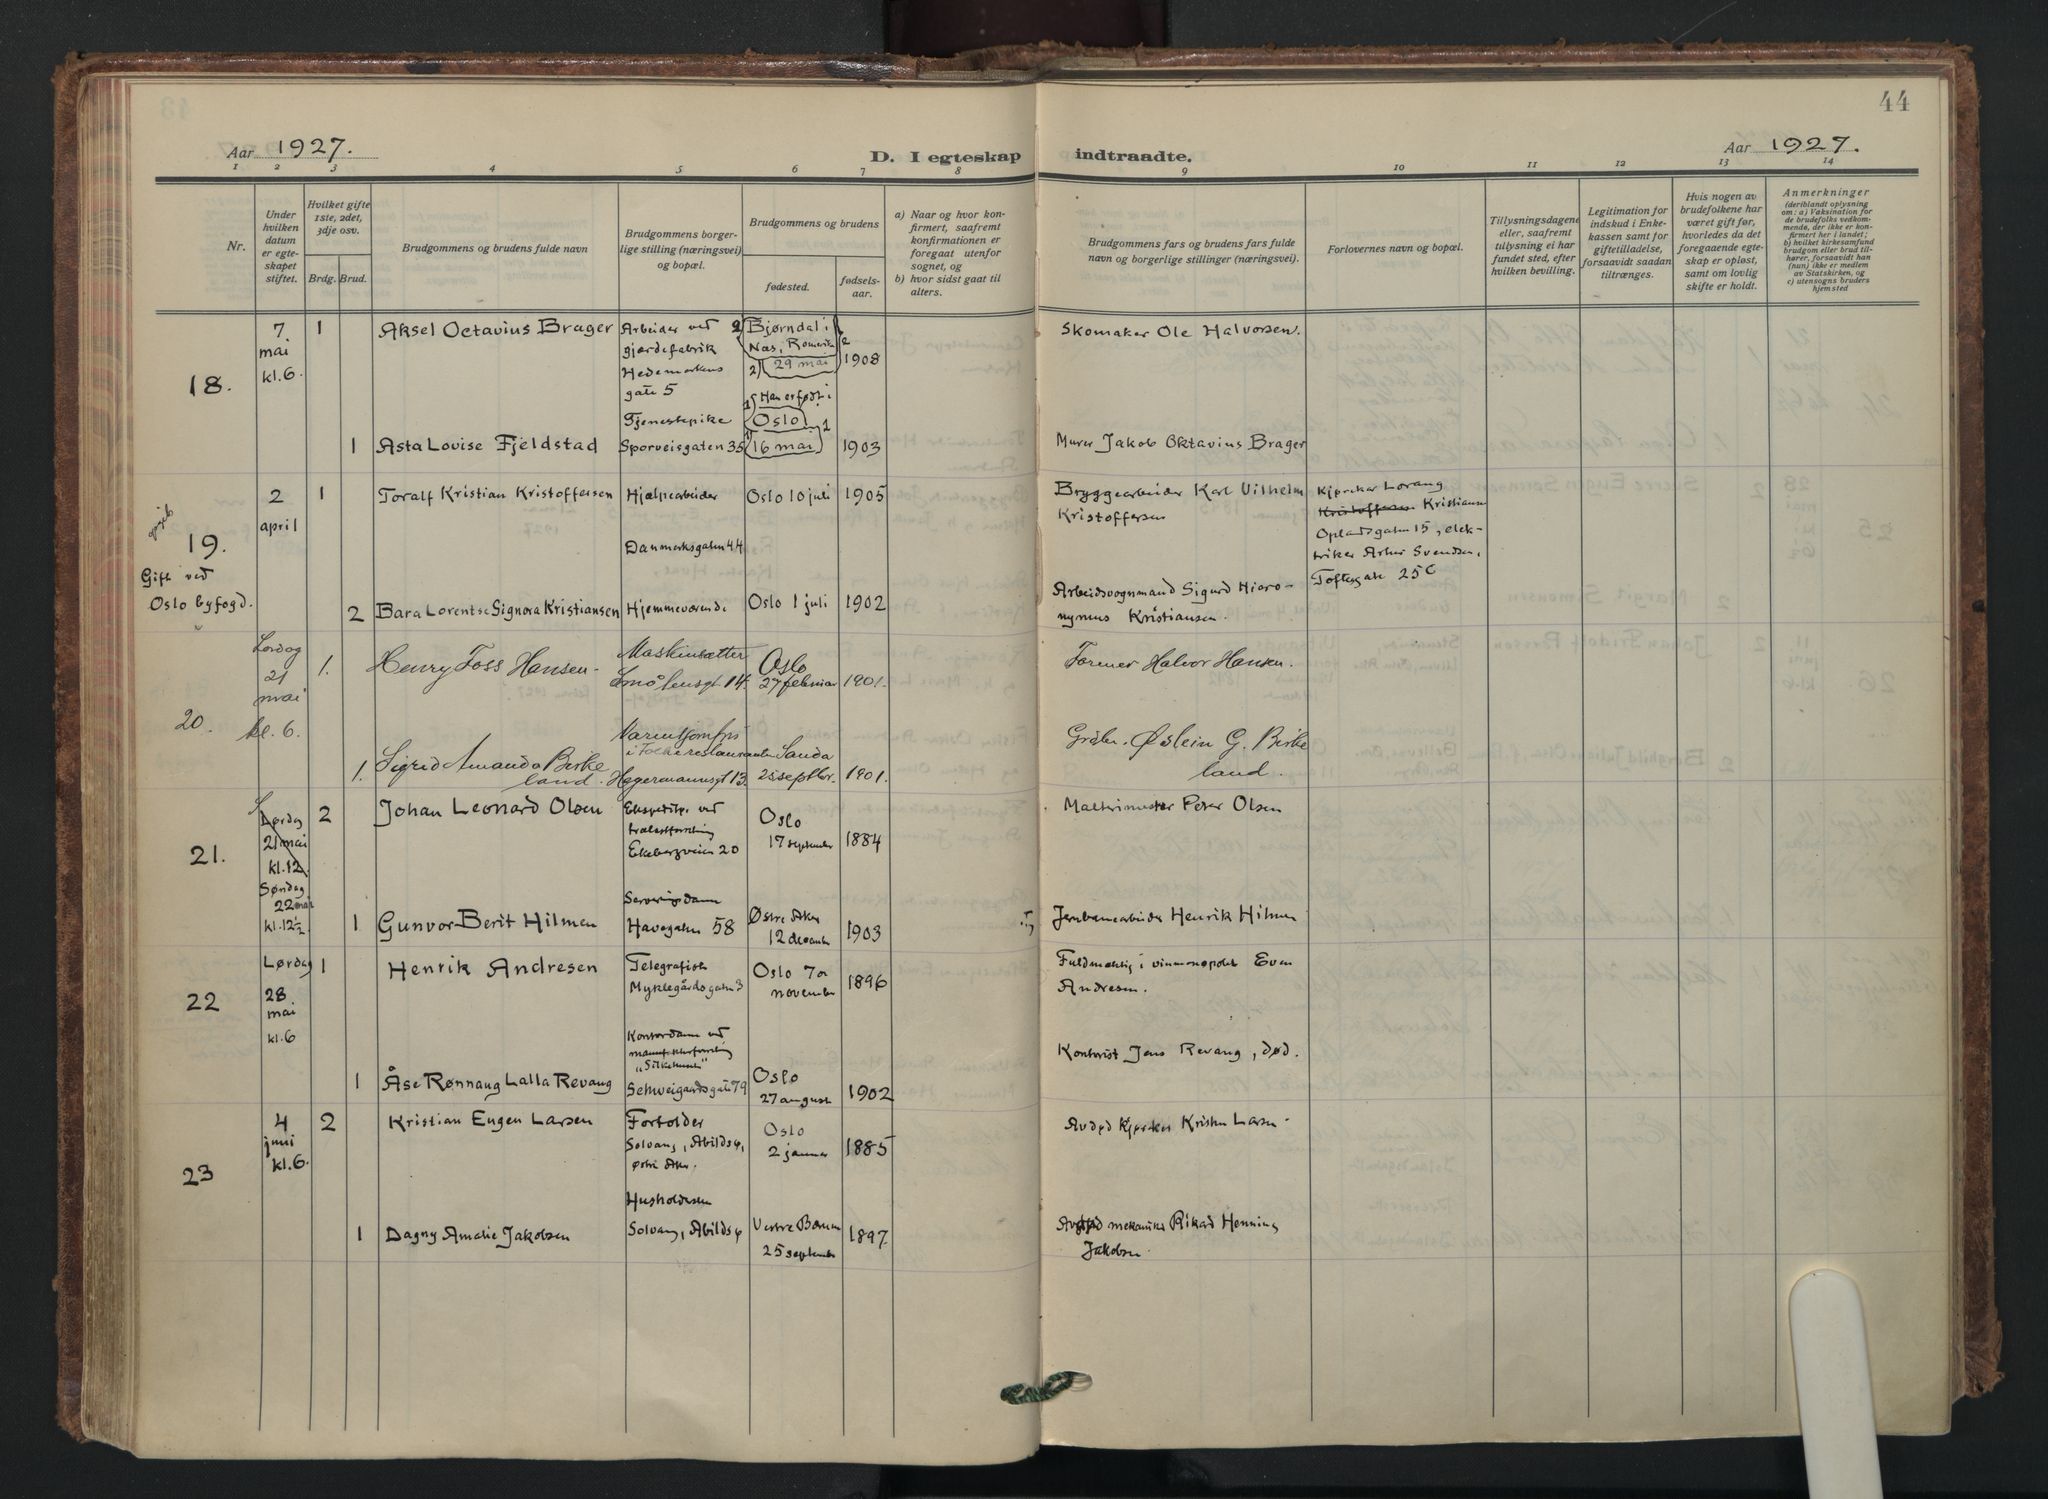 44
Aar 1927.
D. I egteskap indtraadte.
Aar 1927.
1 2 3 4 5 6 7 8 9 10 11 12 13 14
Nr.
Under hvilken datum er egteskapet stiftet.
Hvilket gifte 1ste, 2det, 3dje osv.
Brdg. Brud.
Brudgommens og brudens fulde navn
Brudgommens borgerlige stilling (næringsvei) og bopæl.
Brudgommens og brudens
fødested.
fødselsaar.
a) Naar og hvor konfirmert, saafremt konfirmationen er foregaat utenfor sognet, og
b) hvor sidst gaat til alters.
Brudgommens fars og brudens fars fulde navn og borgerlige stillinger (næringsvei).
Forlovernes navn og bopæl.
Tillysningsdagene eller, saafremt tillysning ei har fundet sted, efter hvilken bevilling.
Legitimation for indskud i Enkekassen samt for giftetilladelse, forsaavidt saadan tiltrænges.
Hvis nogen av brudefolkene har været gift før, hvorledes da det foregaaende egteskap er opløst, samt om lovlig skifte er holdt.
Anmerkninger
(deriblandt oplysning om: a) Vaksination for de brudefolks vedkommende, der ikke er konfirmert her i landet; b) hvilket kirkesamfund brudgom eller brud tilhører, forsaavidt han (hun) ikke er medlem av Statskirken, og c) utensogns bruders hjemsted
18.
7. mai kl. 6.
1
Aksel Octavius Brager
Arbeider ved
gjærdefabrik
Hedemarkens
gate 5
2) Bjørndal i
Næs, Romerike
2) 29 mai
1908
Skomaker Ole Halvorsen.
1) Han er født i
Oslo
16 mai
1
Asta Lovise Fjeldstad
Tjenestepike
Sporveisgaten 35
1903
Murer Jakob Oktavius Brager
19.
Gift ved
Oslo byfogd.
2
april
1
Toralf Kristian Kristoffersen
Hjælpearbeider
Danmarksgaten 44
Oslo 10 juli
1905
Bryggearbeider Karl Vilhelm
Kristoffersen
Kjørekar Lorang
Kristoffersen Kristiansen
Oplandsgaten 15, elek-
triker Artur Svendsen,
Toftesgate 25 C
2
Bara Lorentse Signora Kristiansen
Hjemmeværende
Oslo 1 juli
1902
Arbeidsvognmand Sigurd Hiero-
nymus Kristiansen.
20.
Lørdag
21
mai
kl. 6.
1.
Henry Foss Hansen.
Maskinsætter
Smålensgt 14.
Oslo
27 februar
1901.
Former Halvor Hansen.
1.
Sigrid Amanda Birke
land.
i Folkerestauranten
Hegermannsgt 13.
Sauda
25 septbr.
1901.
Øslein G. Birke
land.
21.
Lørdag
21 mai
kl. 12
Søndag
22 mai
kl. 12½
2
Johan Leonard Olsen
Ekspeditør ved
Ekebergveien 20
Oslo
17 september
1884
Peter Olsen
1
Gunvor Berit Hilmen
Serveringsdame
Havegaten 58
Østre Aker
12 december
1903
Jernbanearbeider Henrik Hilmen
22
Lørdag
28
mai
kl. 6
1
Henrik Andresen
Telegrafist
Myklegårdsgaten 3
Oslo 7de
november
1896
Fuldmektig i vinmonopolet Even
Andresen.
1
Åse Rønnaug Lalla Revang
Kontordame ved
manufakturforretning
Schweigaardsgate 79
Oslo
27 august
1902
Kontorist Jens Revang, død.
23
4
juni
kl. 6.
2
Kristian Eugen Larsen
Forbolder
Solvang, Abildsø,
østre Aker.
Oslo
2 januar
1885
Avdød Kjørekar Kristen Larsen
1
Dagny Amalie Jakobsen
Husholderske
Solvang, Abildsø
Vestre Bærum
25 september
1897
Avdød mekaniker Rikard Henning
Jakobsen.